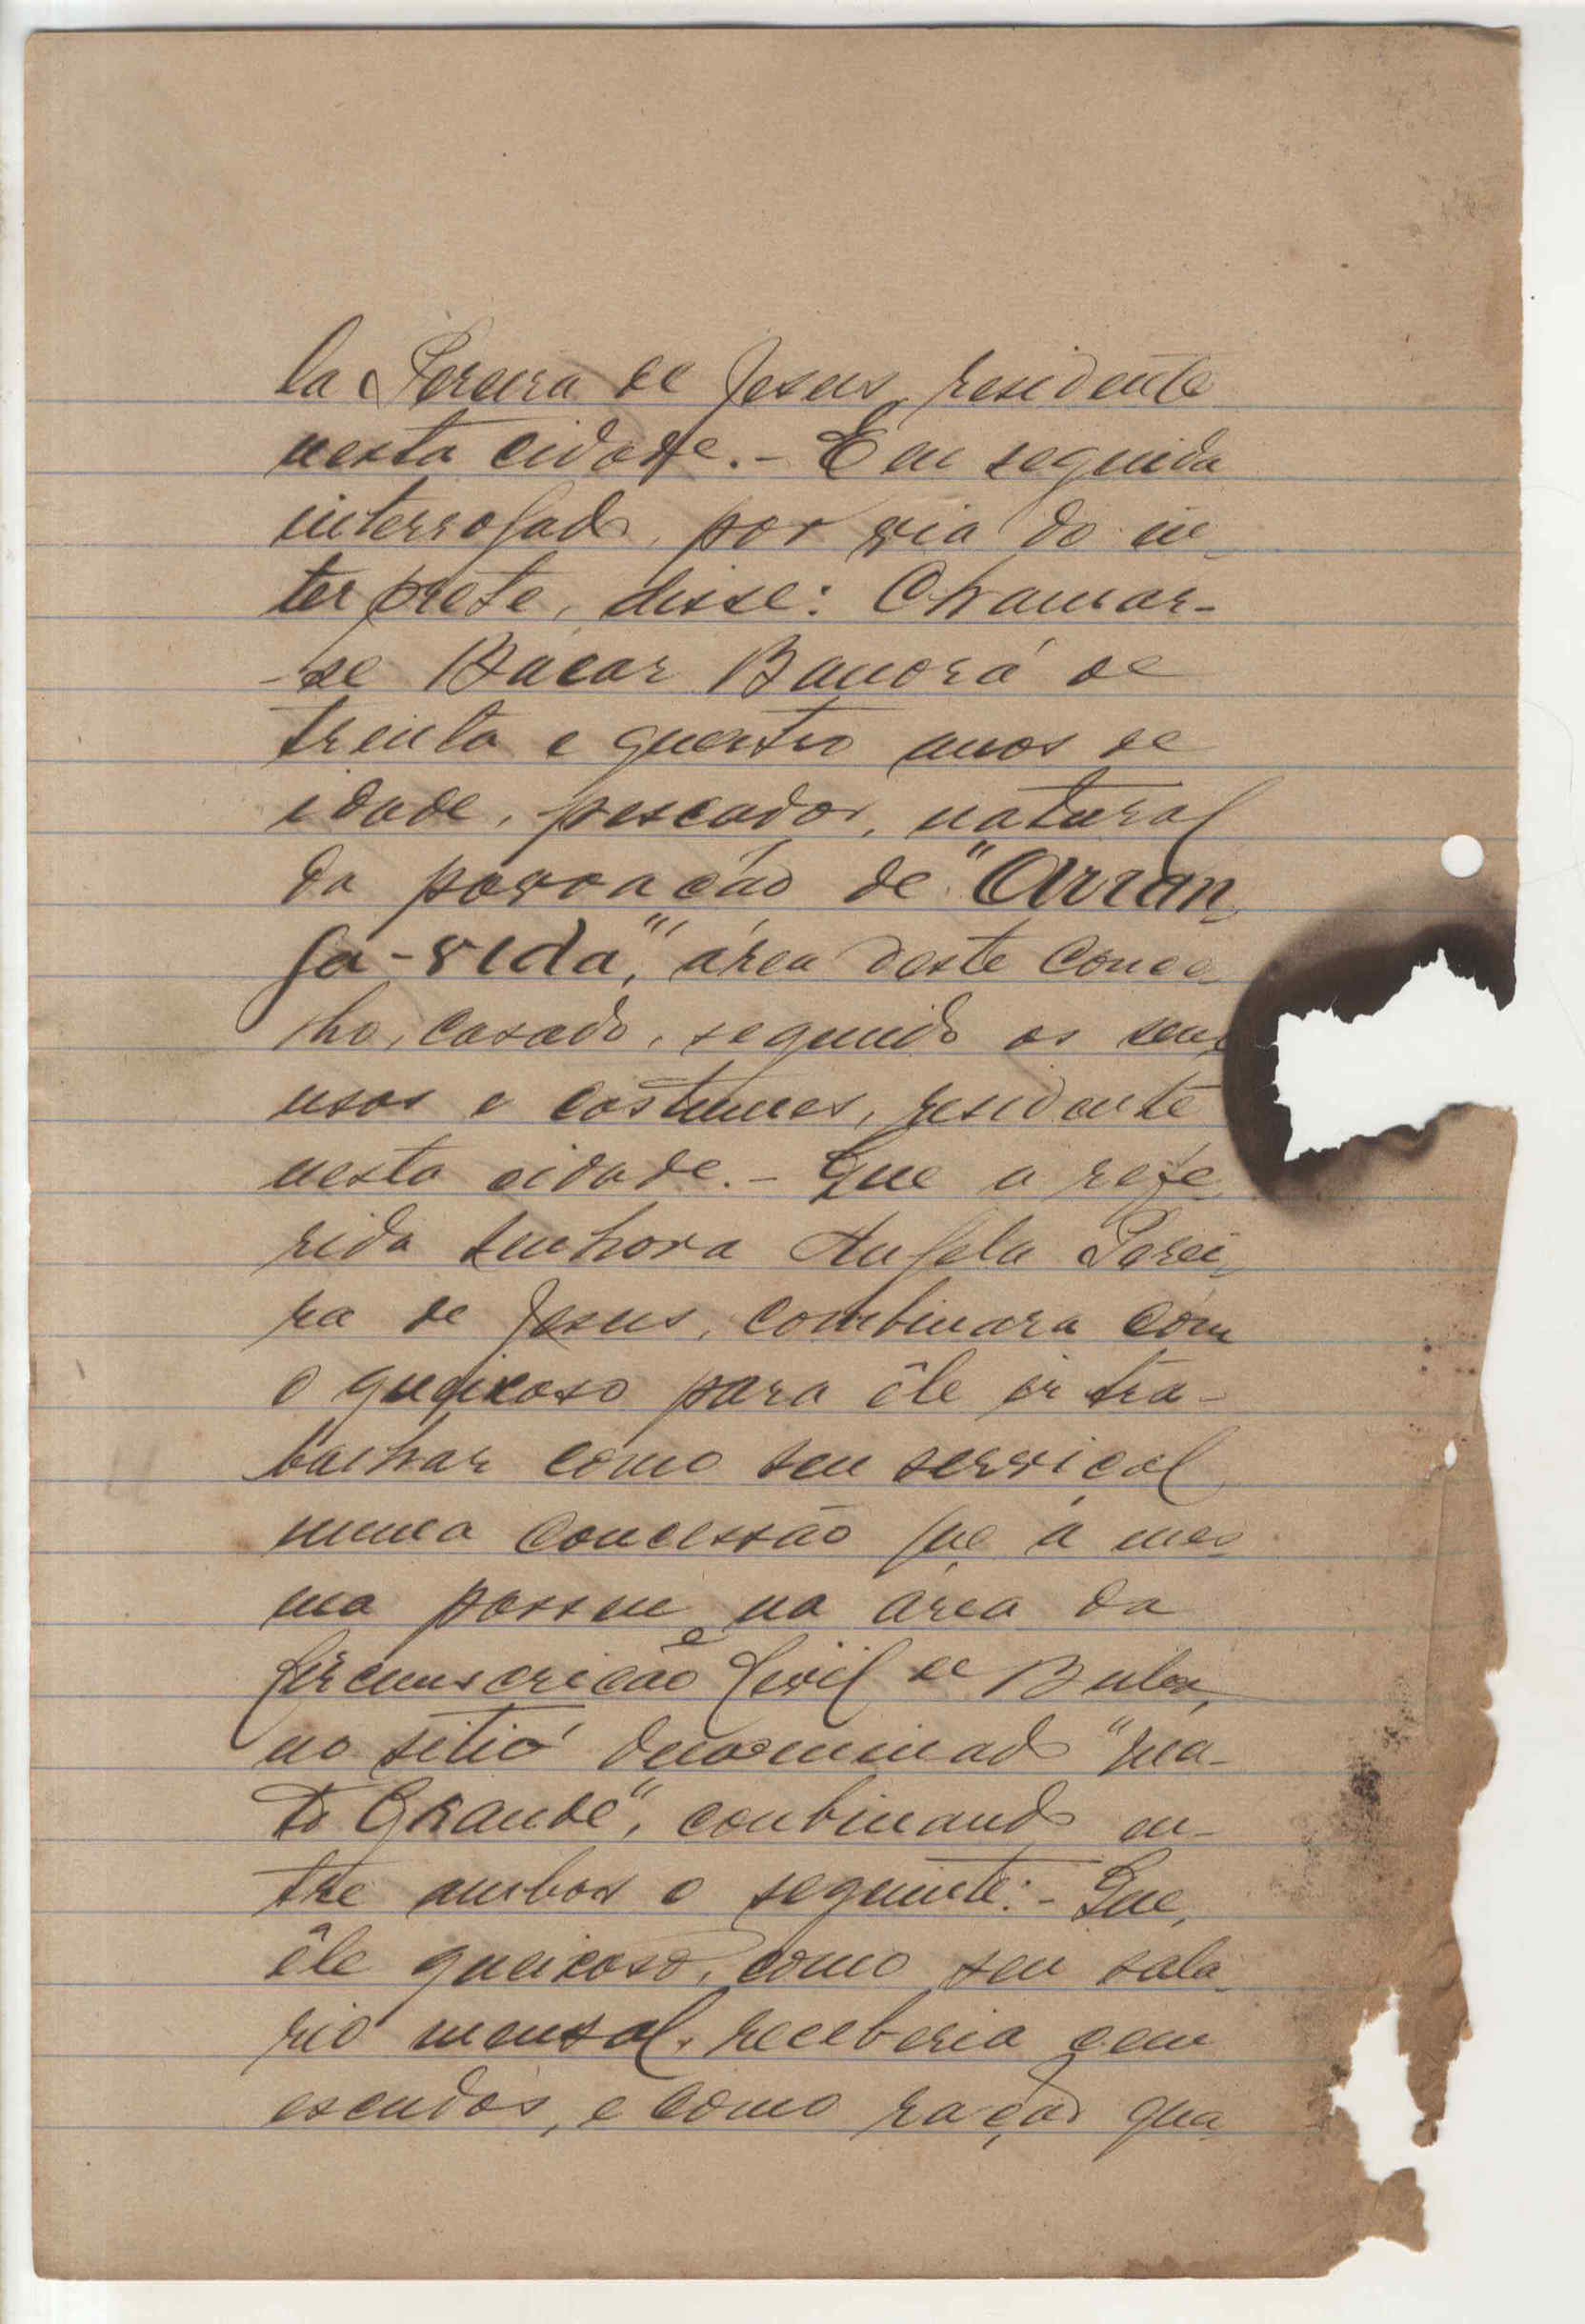 la Pereira de Jesus, residente
nesta cidade.- E em seguida
interrogado, por via do in-
terprete, disse: Chamar-
-se Bácar Banorá de
trinta e quatro anos de
idade, pescador, natural
da povoação de "Arran-
ja-vida", área deste Conce-
lho, casado, segundo os seus
usos e costumes, residente
nesta cidade.- Que a refe-
rida senhora Angela Perei-
ra de Jesus, combinara com
o queixoso para êle ir tra-
balhar como seu serviçal
numa concessão que a mes-
ma possue na área da
Circunscrição Civil de Buba,
no sitio denominado "Ma-
to Grande", combinando en-
tre ambos o seguinte:- Que,
êle queixoso, como seu sala-
rio mensal, receberia cem
escudos, e como ração qua-